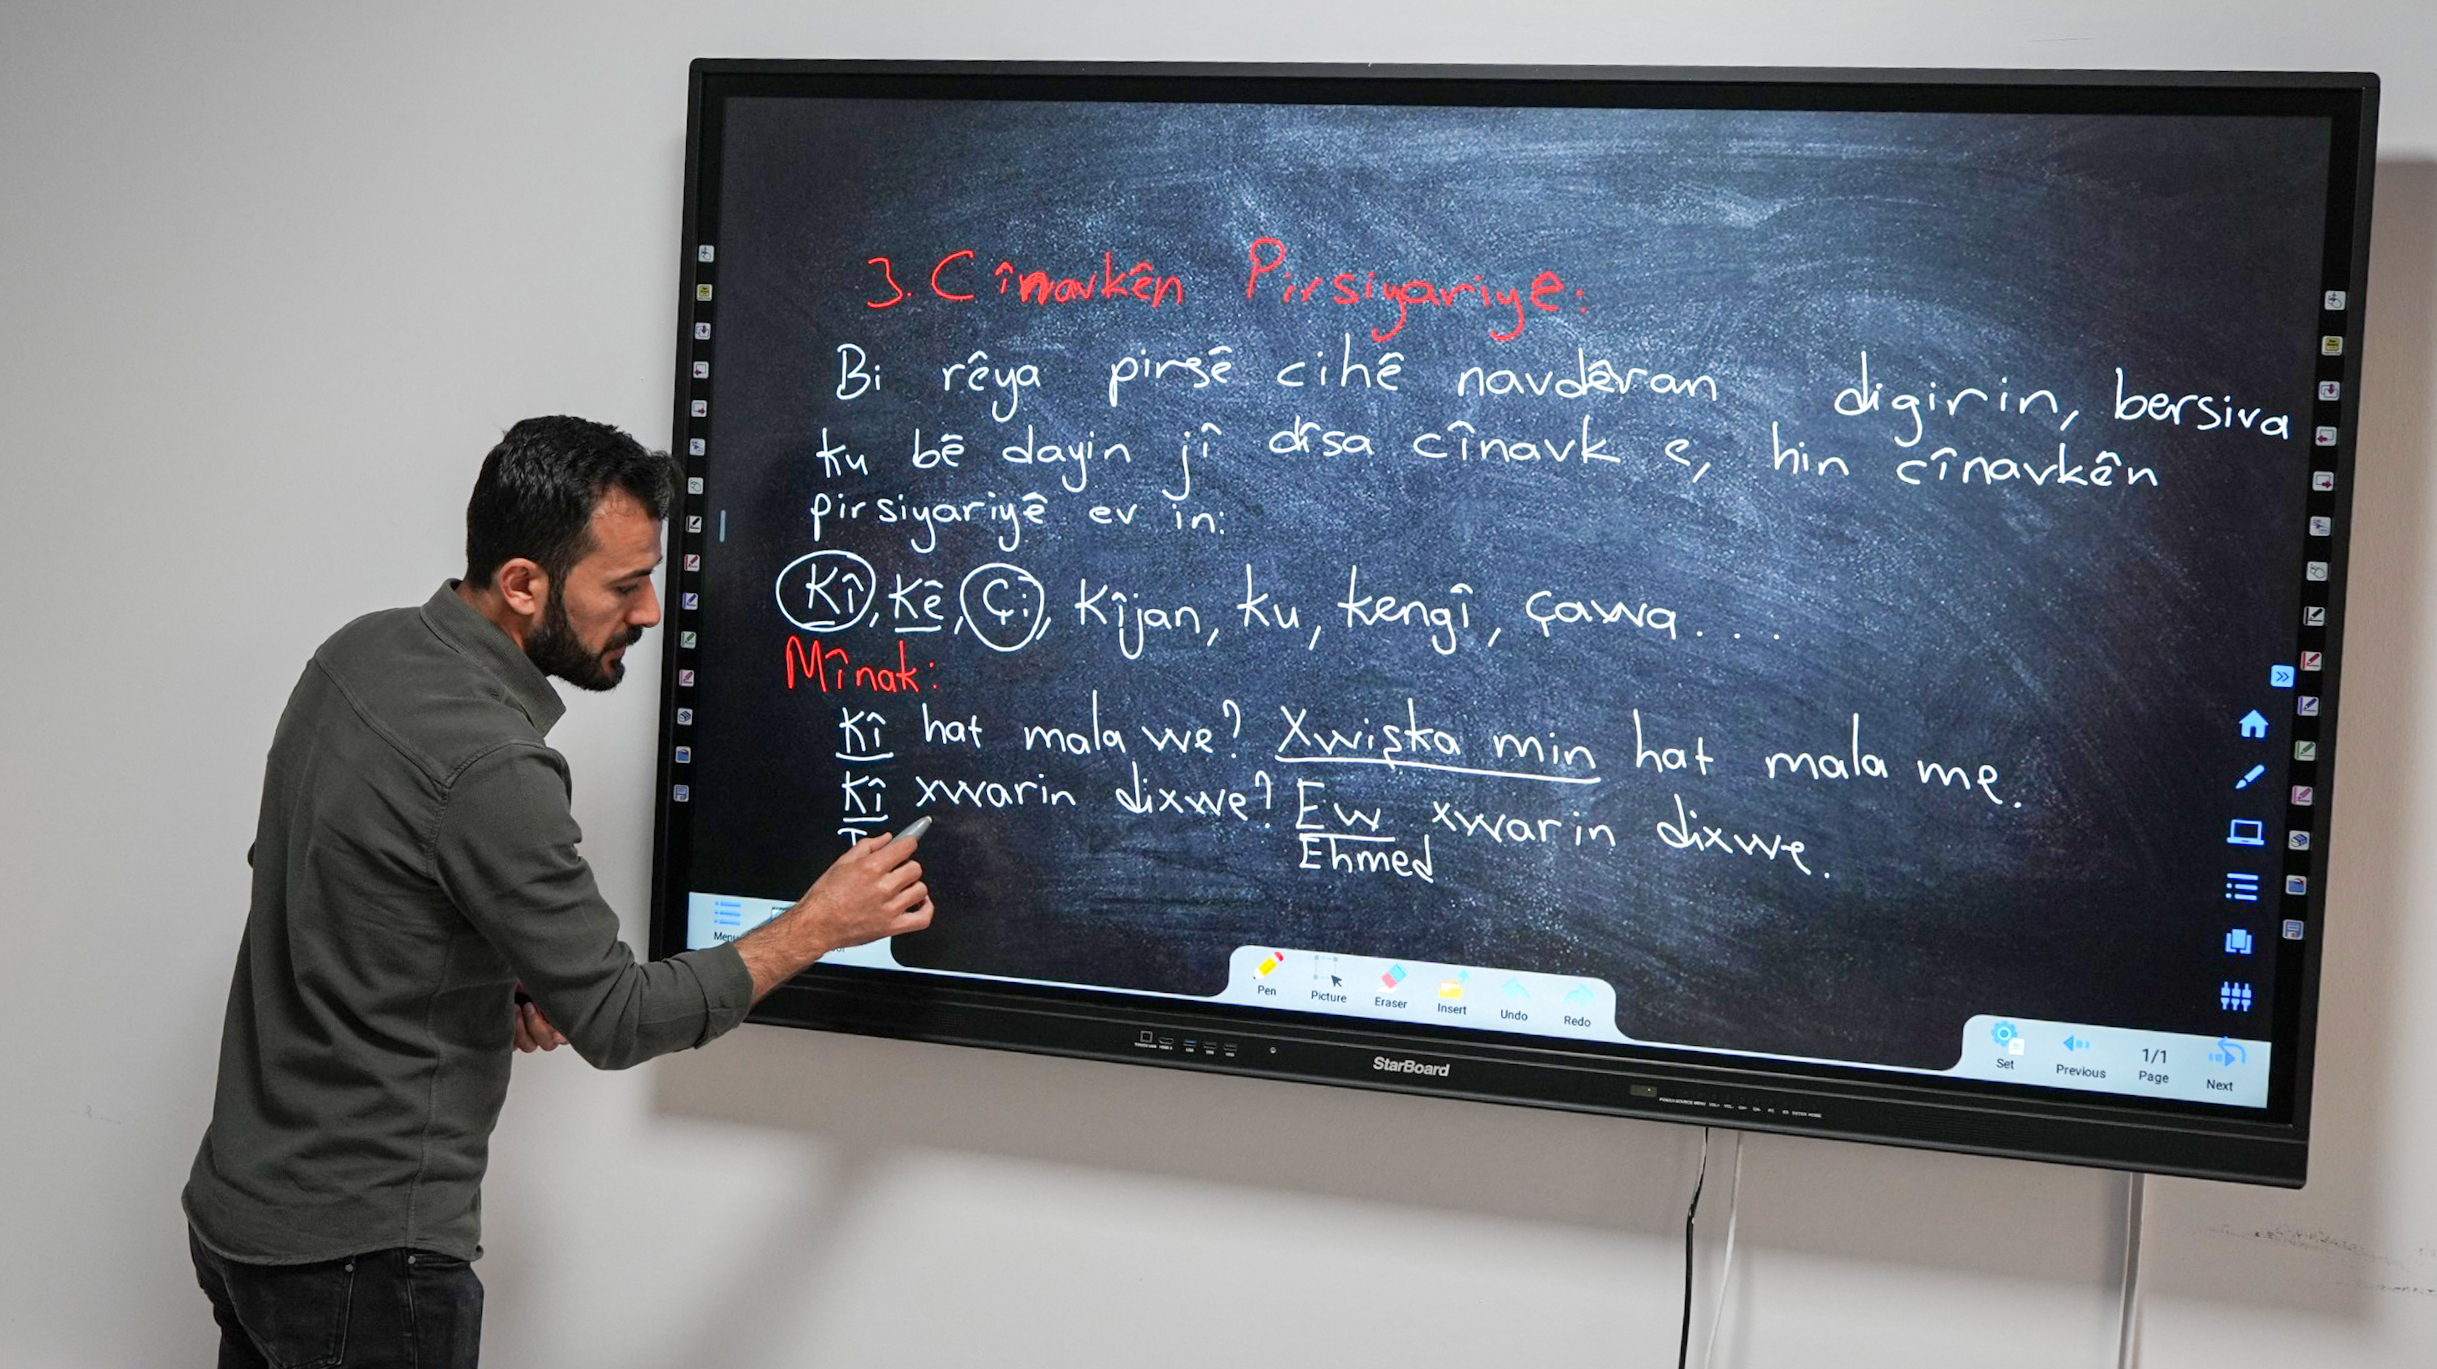 3. Cînavkên Pirsiyariye:
Bi rêya pirsê cihê navdêran digirin, bersiva
ku bê dayin jî dîsa cînavk e, hin cînavkên
pirsiyariyê ev in:
Kî, Kê, Çi, Kîjan, ku, kengî, çawa. . . .
Mînak:
Kî hat mala we? Xwişka min hat mala me.
Kî xwarin dixwe? Ew xwarin dixwe.
Ehmed
Menu
Pen Picture Eraser Insert Undo Redo
Set Previous 1/1 Page Next
StarBoard